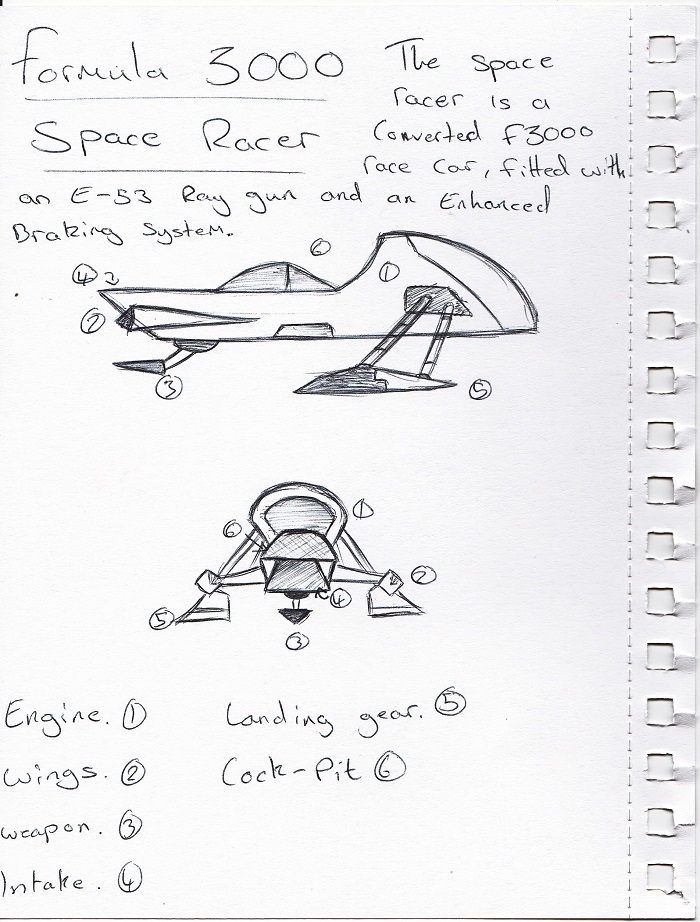 Formula 3000
Space Racer
The space
racer is a
Converted F3000
race car, fitted with
an E-53 Ray gun and an Enhanced
Braking System.
6
4
1
2
3
5
1
6
2
4
5
3
Engine. 1
Landing gear. 5
Wings. 2
Cock-Pit 6
weapon. 3
Intake. 4